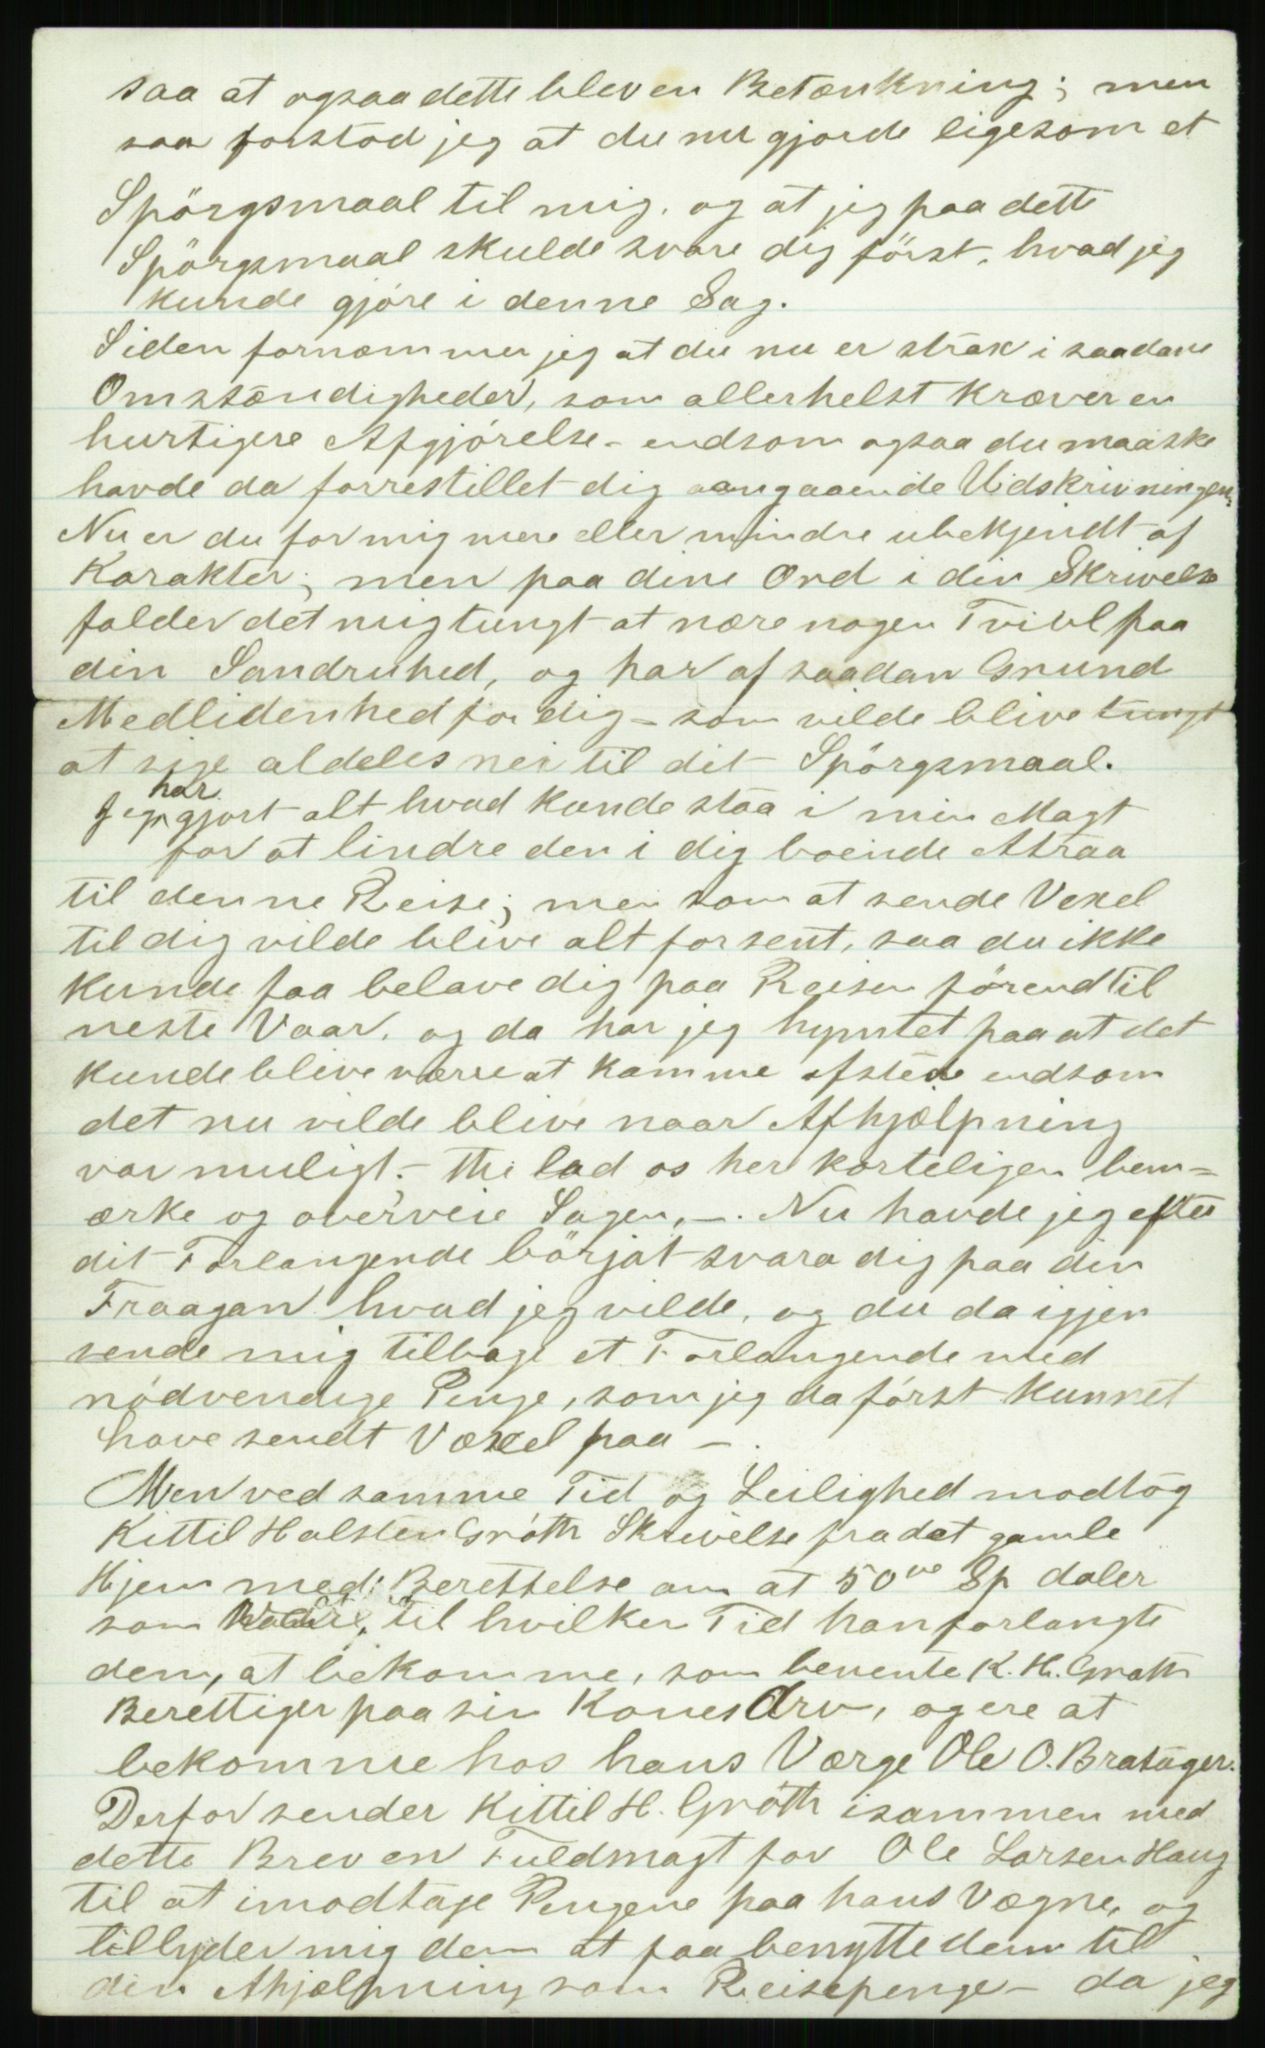 saa at ogsaa dette blev en Betænkning; men
saa forstod jeg at du nu gjorde ligesom et
Spörgsmaal til mig. og at jeg paa dette
Spörgsmaal skulde svare dig först, hvad jeg
kunde gjöre i denne Sag.
Siden fornemmer jeg at du nu er strax i saadane
Omstændigheder, som allerhelst kræver en
hurtigere Afgjörelse - endsom ogsaa du maaske
havde da forrestillet dig aangaaende Udskrivningen,
Nu er du for mig mere eller mindre ubekjendt af
Karakter; men paa dine Ord i din Skrivelse
falder det mig tungt at nære nogen Tvivl paa
din Sandruhed, og har af saadan Grund
Medlidenhed for dig - som vilde blive tungt
at sige aldeles nei til dit Spörgsmaal.
Jeg har gjort alt hvad kunde staa i min Magt
for at lindre den i dig boende Atraa
til denne Reise; men som at sende Vexel
til dig vilde blive alt for sent, saa du ikke
kunde faa belave dig paa Reisen förend til
neste Vaar. og da har jeg hyntet paa at det
kunde blive værre at komme afsted endsom
det nu vilde blive naar Afhjælpning
var muligt. - thi lad os her korteligen bem=
ærke og overveie Sagen, -. Nu havde jeg efter
dit Forlangende börjat svara dig paa din
Fraagan hvad jeg vilde, og du da igjen
sende mig tilbage et Forlangende med
nödvendige Penge, som jeg da först kunnet
have sendt Vexel paa -.
Men ved samme Tid og Leilighed modtog
Kittil Halsten Gróth Skrivelse fra det gamle
Hjem med: Berettelse om at 50ve Sp daler
som til hvilken Tid han forlangte
dem, at bekomme, som benente K. H. Groth
Berettiger paa sin Kones Arv, og ere at
bekomme hos hans Værge Ole O. Bratager.
Derfor sender Kittil H. Gróth isammen med
dette Brev en Fuldmagt for Ole Larsen Haug
til at imodtage Pengene paa hans Vægne, og
tillyder mig dem at faa benytte dem til
din Ahjælpning som Reisepenge - da jeg